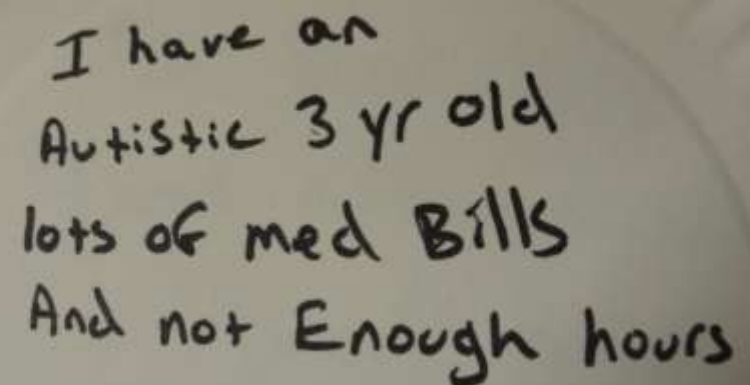 I have an
Autistic 3 yr old
lots oF med Bills
And not Enough hours